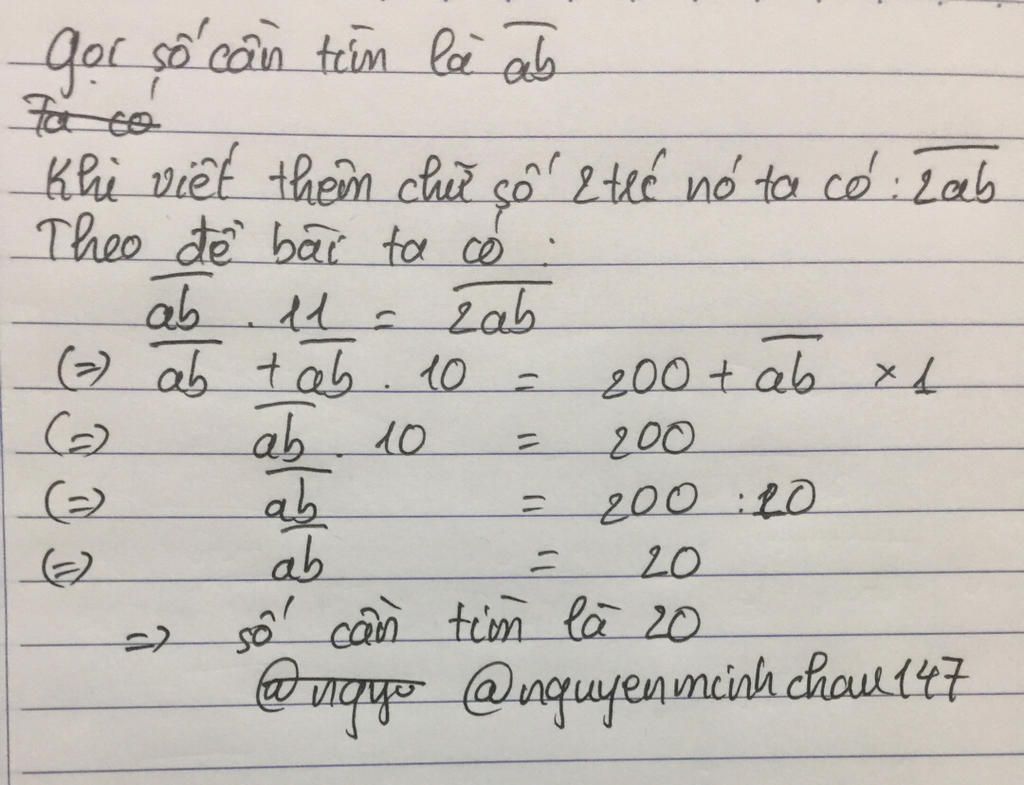 Gọi số cần tìm là ab
Ta có
Khi viết thêm chữ số 2 trc nó ta có : 2ab
Theo đề bài ta có :
ab . 11 = 2ab
(=) ab + ab . 10 = 200 + ab × 1
(=) ab . 10 = 200
(=) ab = 200 : 10
(=) ab = 20
=> số cần tìm là 20
@nguye @nguyenminhchau147